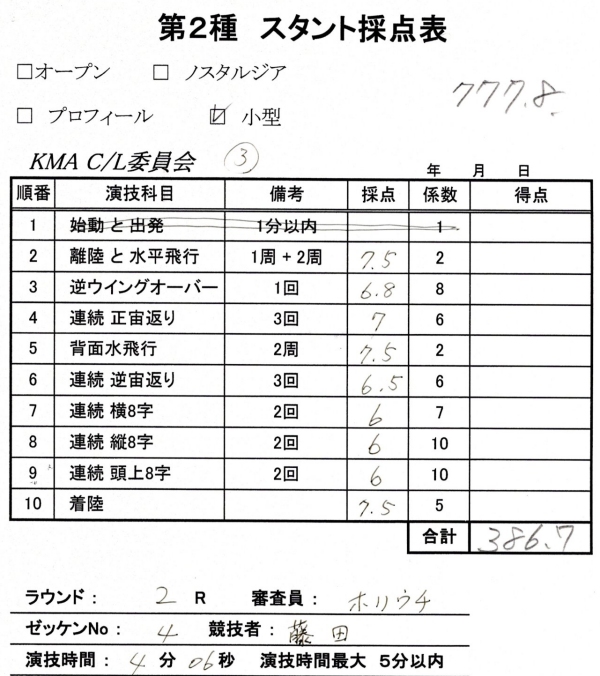 第2種 スタント採点表
□オープン □ ノスタルジア
□ プロフィール ☑ 小型
777.8
KMA C/L委員会 ③
年 月 日
順番 演技科目 備考 採点 係数 得点
1 始動 と 出発 1分以内 1
2 離陸 と 水平飛行 1周 + 2周 7.5 2
3 逆ウイングオーバー 1回 6.8 8
4 連続 正宙返り 3回 7 6
5 背面水飛行 2周 7.5 2
6 連続 逆宙返り 3回 6.5 6
7 連続 横8字 2回 6 7
8 連続 縦8字 2回 6 10
9 連続 頭上8字 2回 6 10
10 着陸 7.5 5
合計 386.7
ラウンド : 2 R 審査員 : ホリウチ
ゼッケンNo : 4 競技者 : 藤田
演技時間 : 4 分 06 秒 演技時間最大 5分以内